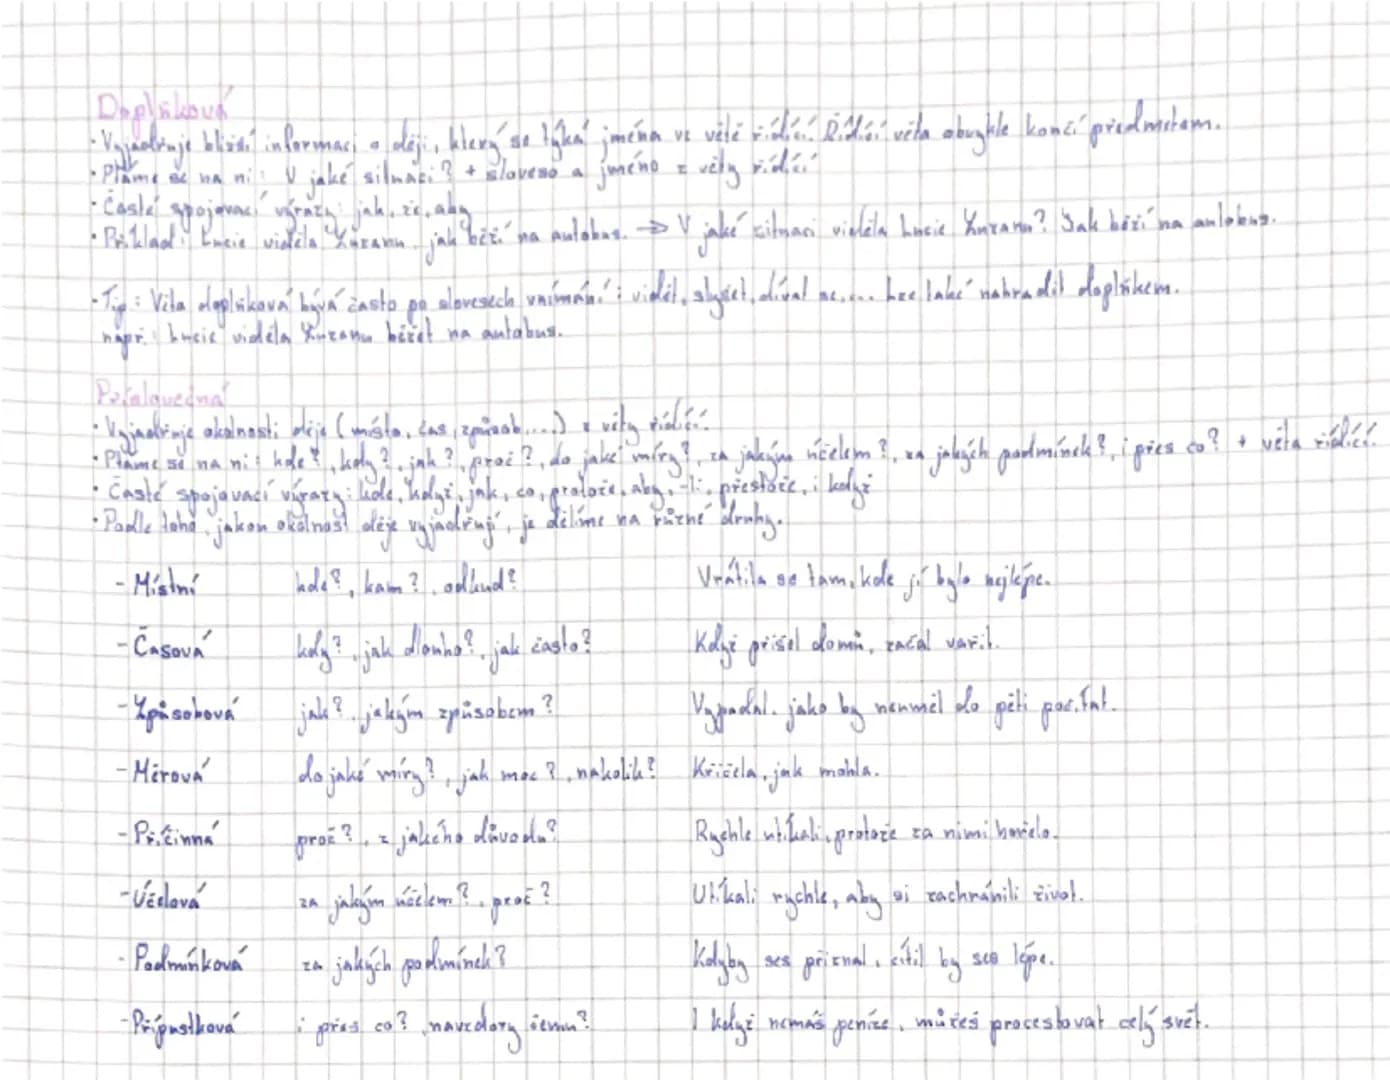 Doplňková
• Vyjadřuje bližší informaci o ději, který se týká jména ve větě řídící. Řídící věta obvykle končí předmětem.
• Ptáme se na ni: V jaké situaci? + sloveso a jméno z věty řídící
• Časté spojovací výrazy: jak, že, aby
• Příklad: Lucie viděla Zuzanu, jak běží na autobus. → V jaké situaci viděla Lucie Zuzanu? Jak běží na autobus.
• Tip: Věta doplňková bývá často po slovesech vnímání: vidět, slyšet, dívat se,... lze také nahradit doplňkem.
např.: Lucie viděla Zuzanu běžet na autobus.
Příslovečná
• Vyjadřuje okolnosti děje (místo, čas, způsob,...) z věty řídící.
• Ptáme se na ni: kde?, kdy?, jak?, proč?, do jaké míry?, za jakým účelem?, za jakých podmínek?, i přes co? + věta řídící.
• Časté spojovací výrazy: kde, když, jak, co, protože, aby, -li, přestože, i když
• Podle toho, jakou okolnost děje vyjadřují, je dělíme na různé druhy.
- Místní kde?, kam?, odkud? Vrátila se tam, kde jí bylo nejlépe.
- Časová kdy?, jak dlouho?, jak často? Když přišel domů, začal vařit.
- Způsobová jak?, jakým způsobem? Vypadal, jako by neuměl do pěti počítat.
- Měrová do jaké míry?, jak moc?, nakolik? Křičela, jak mohla.
- Příčinná proč?, z jakého důvodu? Rychle utíkali, protože za nimi hořelo.
- Účelová za jakým účelem?, proč? Utíkali rychle, aby si zachránili život.
- Podmínková za jakých podmínek? Kdyby ses přiznal, cítil by ses lépe.
- Přípustková i přes co?, navzdory čemu? I když nemáš peníze, můžeš procestovat celý svět.